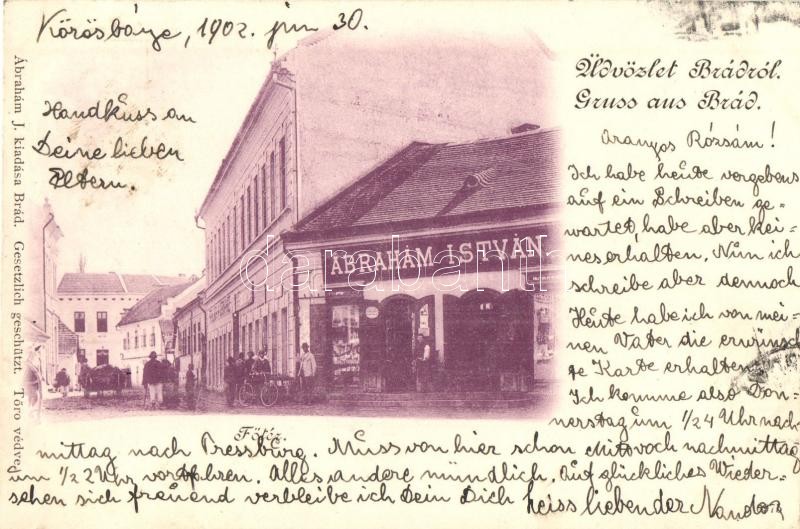 Körösbánya, 1902. jun 30.
Handkuss an
Deine lieben
Eltern.
Üdvözlet Brádról.
Gruss aus Brád.
Aranyos Rózsám!
Ich habe heute vergebens
auf ein Schreiben ge-
wartet, habe aber kei-
nes erhalten. Nun ich
schreibe aber dennoch
Heute habe ich von mei-
nen Vater die erwünsch
te Karte erhalten
Ich komme also Don-
nerstag um 1/24 Uhr nach-
mittag nach Pressburg. Muss von hier schon Mittwoch nachmittag
um 1/2 2 Uhr vortfahren. Alles andere mündlich. Auf glückliches Wieder-
sehen sich freuend verbleibe ich Dein Dich heiss liebender Nandor
ÁBRAHÁM ISTVÁN
Főtér.
Ábrahám J. kiadása Brád. Gesetzlich geschützt. Törv védve
darabanth